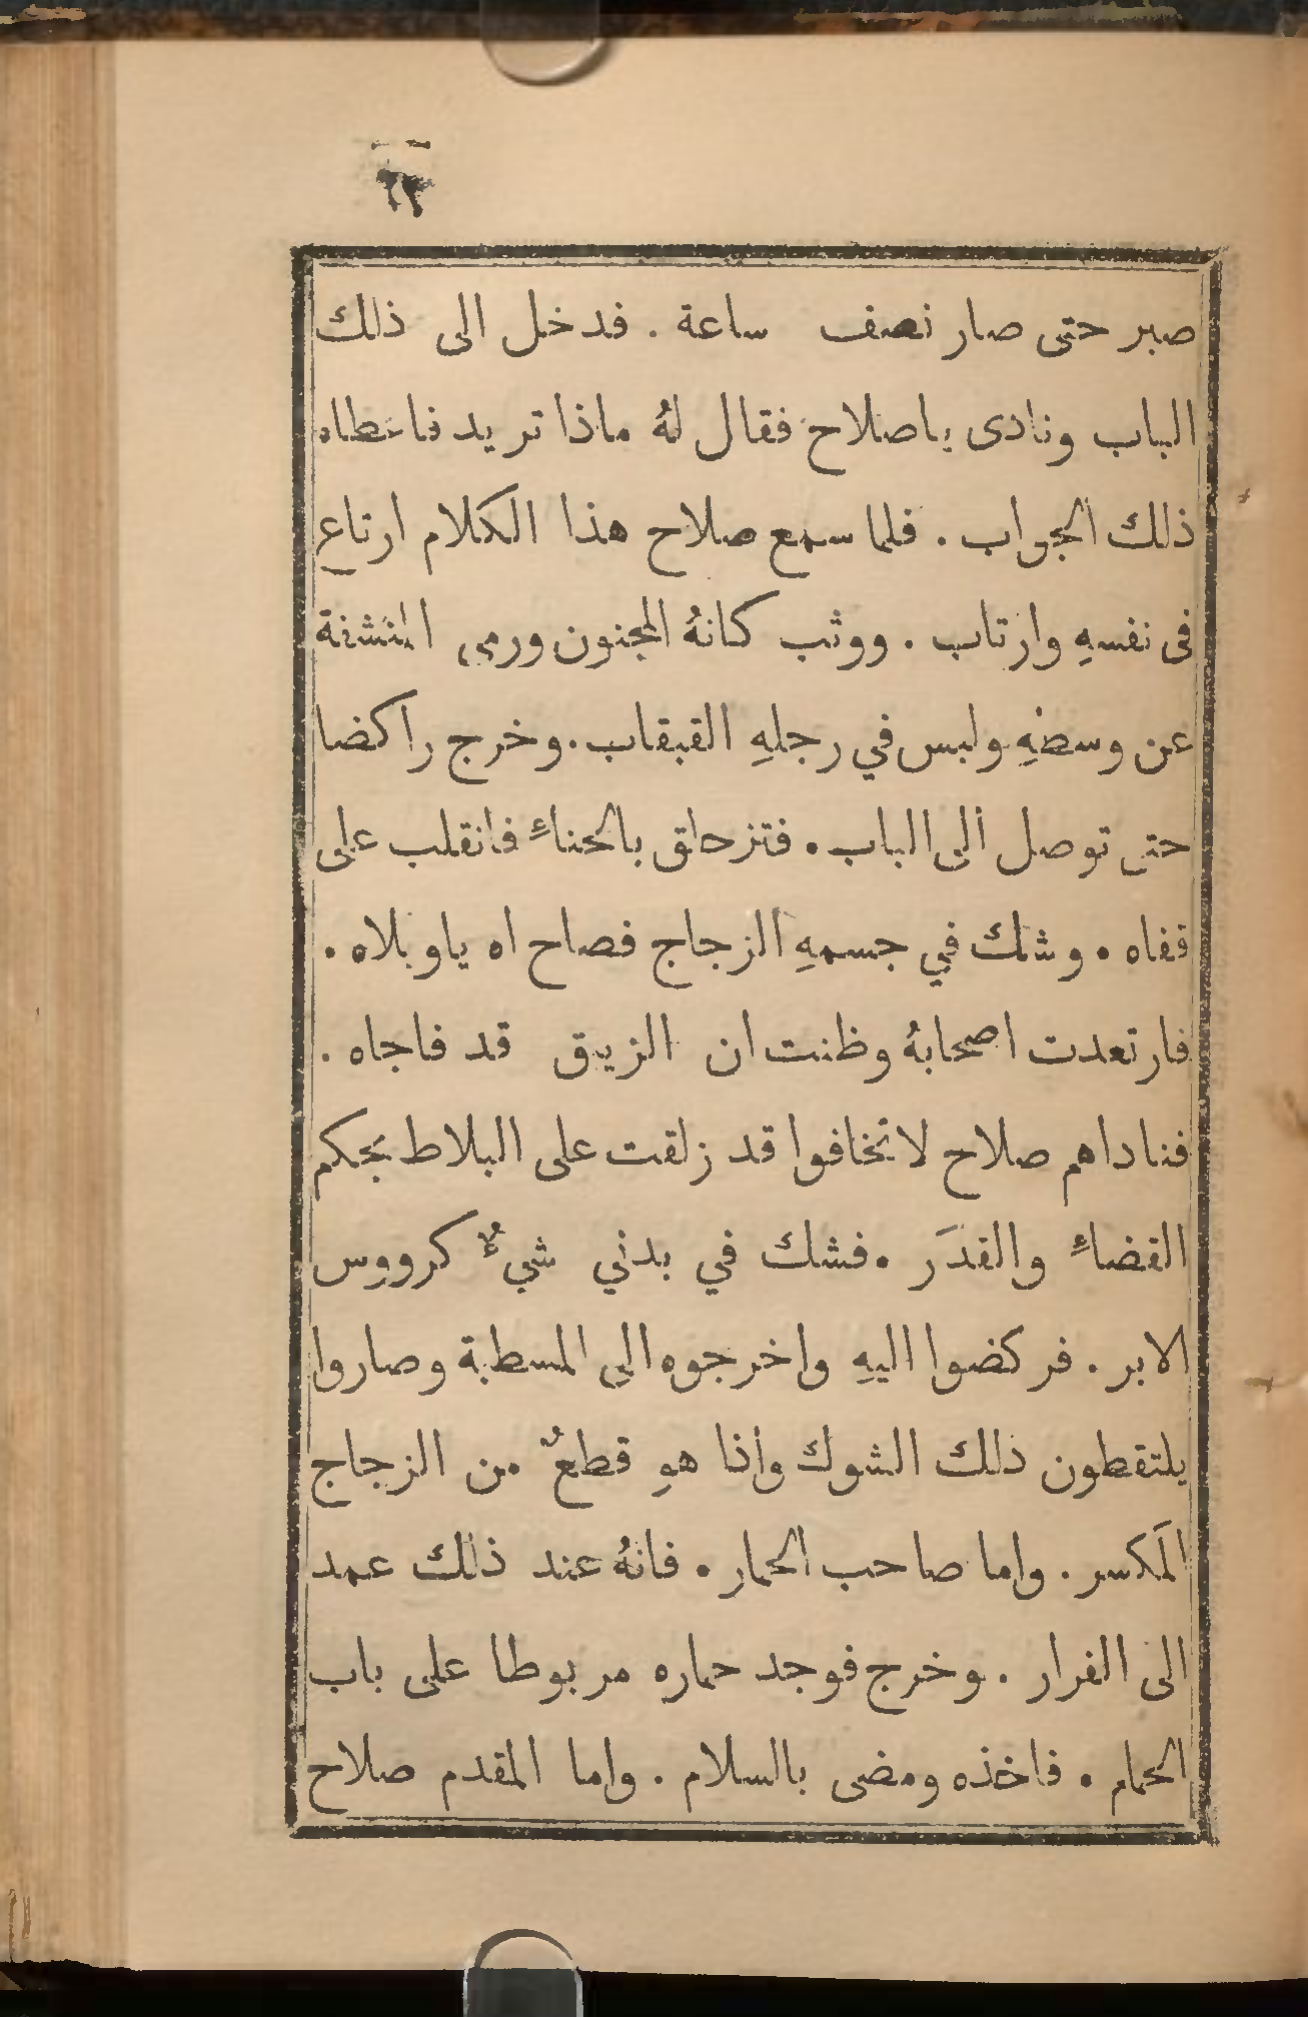 صبر حتى صار نصف ساعة . فدخل الى ذلك
الباب ونادى ياصلاح فقال لهُ ماذا تريد فاعطاه
ذلك الجواب . فلما سمع صلاح هذا الكلام ارتاع
فى نفسهِ وارتاب . ووثب كانهُ المجنون ورمى المنشفة
عن وسطهِ ولبس في رجلهِ القبقاب . وخرج راكضا
حتى توصل الى الباب . فتزحلق بالحناءِ فانقلب على
قفاه . وشك في جسمهِ الزجاج فصاح اه ياويلاه .
فارتعدت اصحابهُ وظنت ان الزيبق قد فاجاه .
فناداهم صلاح لا تخافوا قد زلقت على البلاط بحكم
القضاءِ والقدَر . فشك في بدني شيءٌ كرووس
الابر . فركضوا اليهِ واخرجوه الى المسطبة وصاروا
يلتقطون ذلك الشوك واذا هو قطعٌ من الزجاج
المَكسر . واما صاحب الحمار . فانهُ عند ذلك عمد
الى الفرار . وخرج فوجد حماره مربوطا على باب
الحمام . فاخذه ومضى بالسلام . واما المقدم صلاح